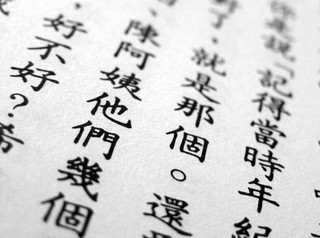 你是說「記得當時年紀
對了,就是那個。還
、陳阿姨他們幾個
,好不好?希